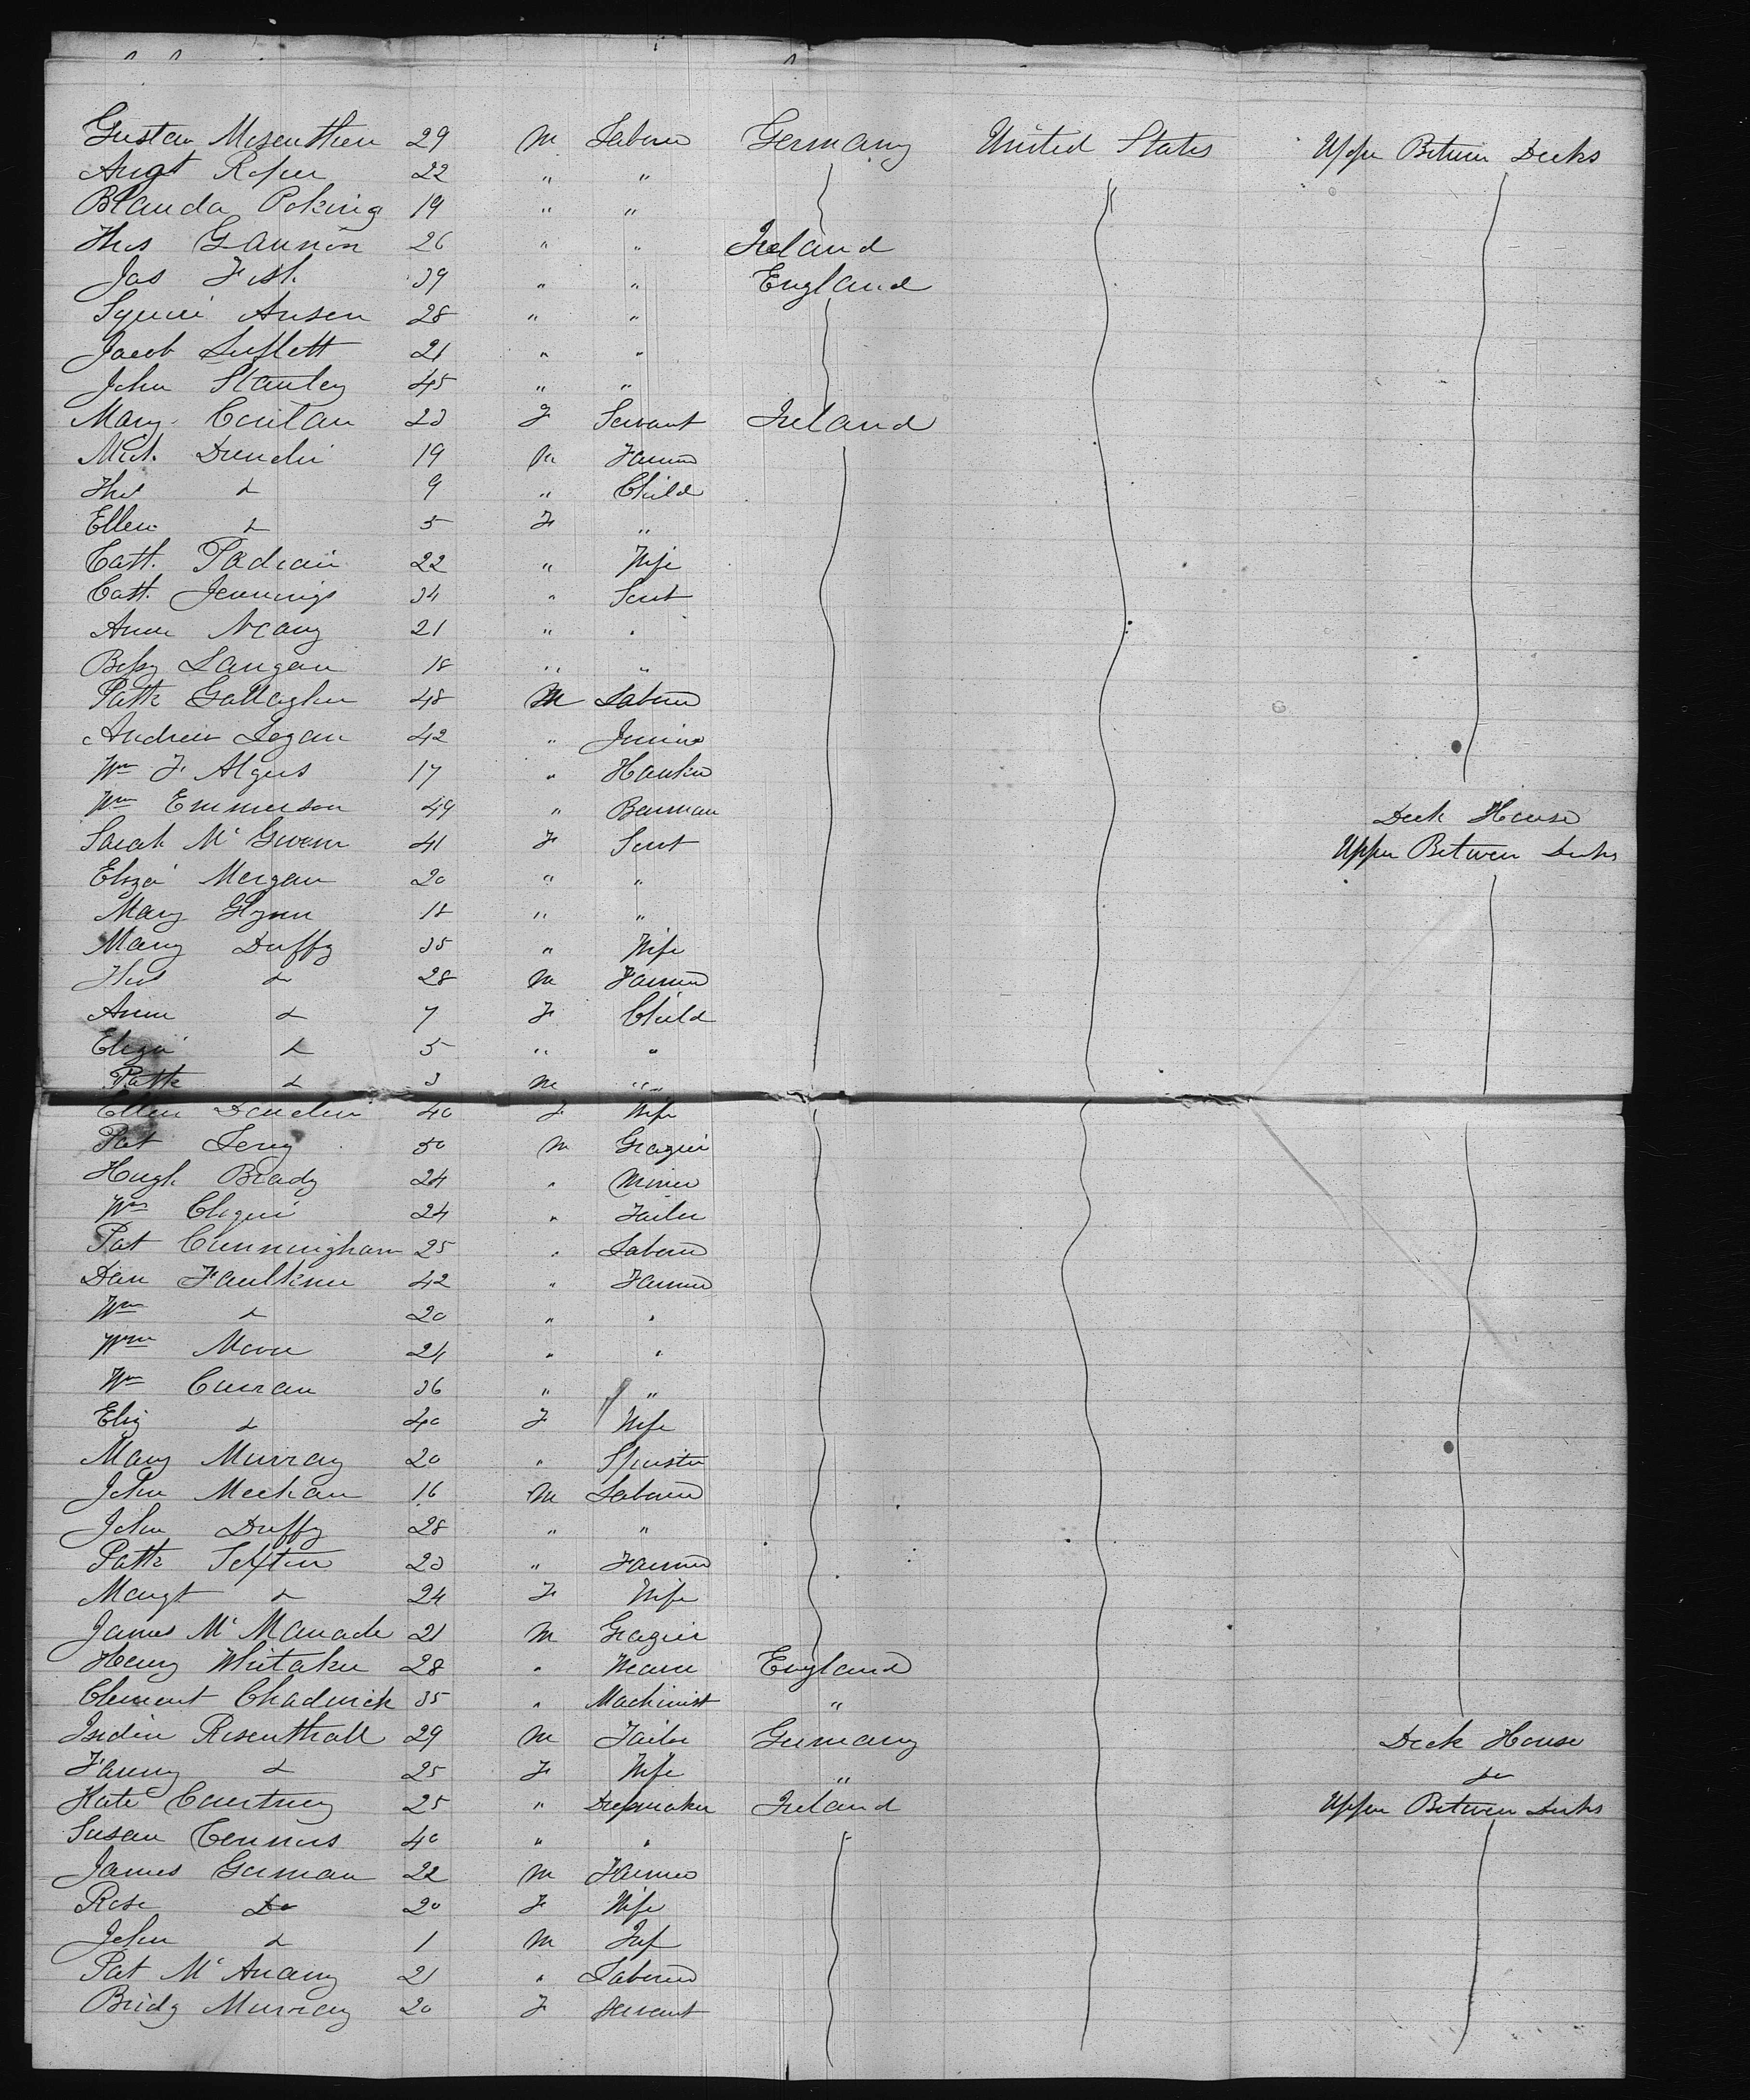 Gustav Mesenthien 29 M Laborer Germany United States Upper Between Decks
Augt Roper 22 " "
Blanda Poking 19 " "
Thos Gannon 26 " " Ireland
Jas Fish 39 " " England
Squire Ansen 28 " "
Jacob 21 " "
John Stanley 45 " "
Mary Conlan 23 F Servant Ireland
Mich. 19 M Farmer
Thos d 9 " Child
Ellen d 5 F "
Cath. Padian 22 " Wife
Cath. Jennings 34 " Servt
Anne 21 " "
Bessy Langan 18 " "
Patk Gallagher 48 M Laborer
Andrew Logan 42 "
Wm F. Algers 17 " Hawker
Wm Emmerson 49 " Barman Deck House
Sarah Mc Gwenn 41 F Servt Upper Between Decks
Eliza Morgan 20 " "
Mary Glynn 18 " "
Mary Duffy 35 " Wife
Thos d 28 M Farmer
Anne d 7 F Child
Eliza d 5 " "
Patk d 3 M "
Ellen 40 F Wife
Pat 50 M Grazier
Hugh Brady 24 " Miner
Wm 24 " Tailor
Pat Cunningham 25 " Laborer
Dan Faulkner 42 " Farmer
Wm d 20 " "
Wm Moore 24 " "
Wm Curran 36 " "
Eliz d 40 F Wife
Mary Murray 20 " Spinster
John Meehan 16 M Laborer
John Duffy 28 " "
Patk Sexton 23 " Farmer
Margt d 24 F Wife
James Mc Manade 21 M Grazier
Henry Whitaker 28 " Weaver England
Clement Chadwick 35 " Machinist "
Isidin Rosenthall 29 M Tailor Germany Deck House
Fanny d 25 F Wife " do
Kate Courtney 25 " Dressmaker Ireland Upper Between Decks
Susan Connors 40 " "
James Gorman 22 M Farmer
Rose Do 20 F Wife
John d 1 M Inf
Pat Mc Anany 21 " Laborer
Bridg Murray 20 F Servant